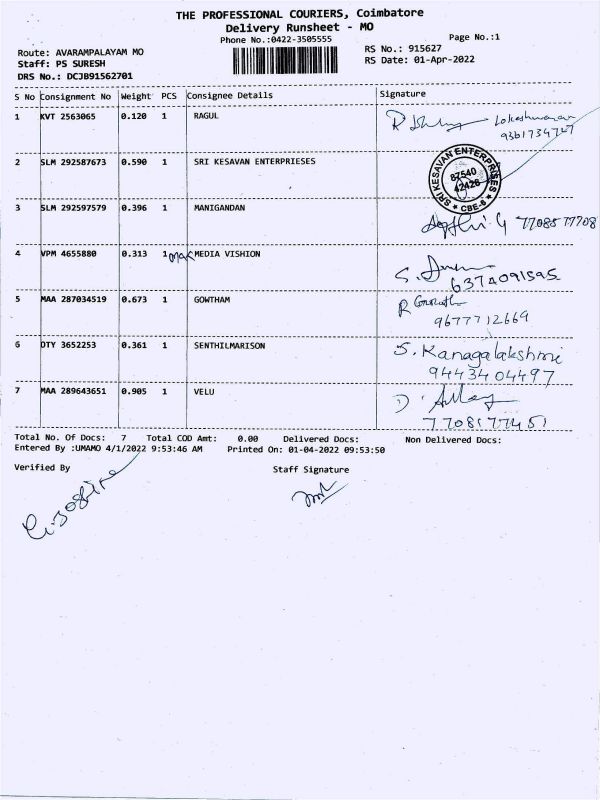 THE PROFESSIONAL COURIERS, Coimbatore
Delivery Runsheet - MO
Phone No.:0422-3505555
Page No.:1
Route: AVARAMPALAYAM MO
RS No.: 915627
Staff: PS SURESH
RS Date: 01-Apr-2022
DRS No.: DCJB91562701
S No Consignment No Weight PCS Consignee Details Signature
1 KVT 2563065 0.120 1 RAGUL
9361734747
2 SLM 292587673 0.590 1 SRI KESAVAN ENTERPRIESES
SRI KESAVAN ENTERPRISES
87540
42426
CBE-6
3 SLM 292597579 0.396 1 MANIGANDAN
7708577708
4 VPM 4655880 0.313 1 MEDIA VISHION
6374091595
5 MAA 287034519 0.673 1 GOWTHAM
R
9677712669
6 DTY 3652253 0.361 1 SENTHILMARISON S. Kanagalakshmi
9443404497
7 MAA 289643651 0.905 1 VELU
7708177451
Total No. Of Docs: 7 Total COD Amt: 0.00 Delivered Docs: Non Delivered Docs:
Entered By :UMAMO 4/1/2022 9:53:46 AM Printed On: 01-04-2022 09:53:50
Verified By Staff Signature